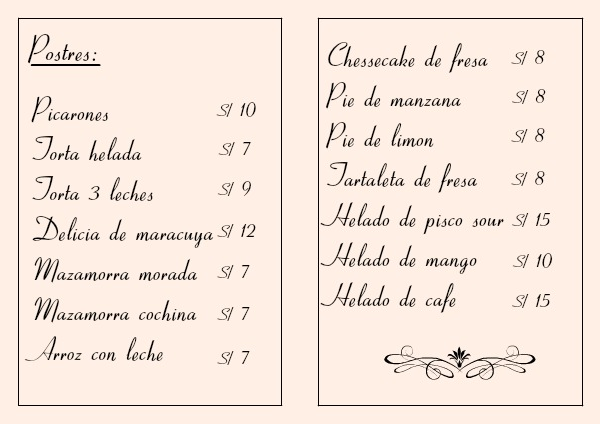 Postres:
Picarones S/ 10
Torta helada S/ 7
Torta 3 leches S/ 9
Delicia de maracuya S/ 12
Mazamorra morada S/ 7
Mazamorra cochina S/ 7
Arroz con leche S/ 7
Chessecake de fresa S/ 8
Pie de manzana S/ 8
Pie de limon S/ 8
Tartaleta de fresa S/ 8
Helado de pisco sour S/ 15
Helado de mango S/ 10
Helado de cafe S/ 15